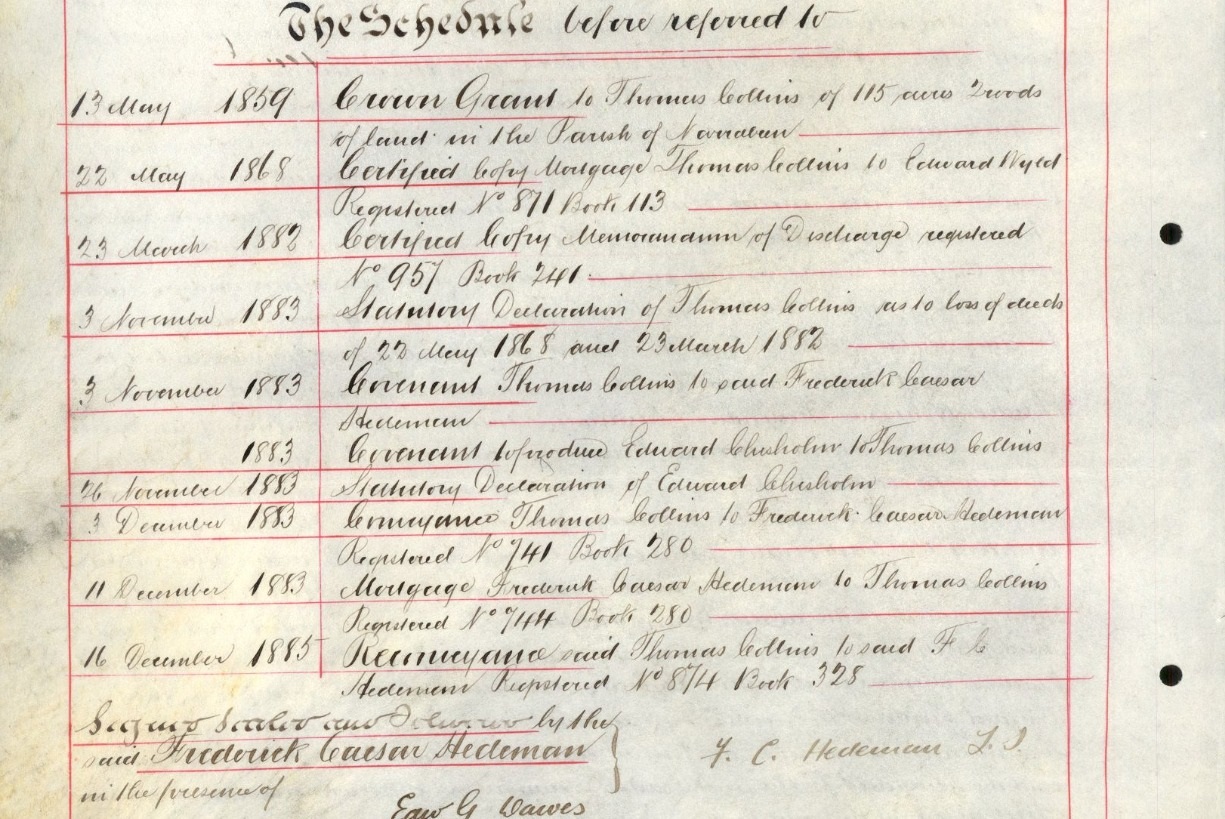 The Schedule before referred to
13 May 1859 Crown Grant to Thomas Collins of 115 acres 2 roods
of land in the Parish of Narraben
22 May 1868 Certified Copy Mortgage Thomas Collins to Edward Wyld
Registered No 871 Book 113
23 March 1882 Certified Copy Memorandum of Discharge registered
No 957 Book 241
3 November 1883 Statutory Declaration of Thomas Collins as to loss of deeds
of 22 May 1868 and 23 March 1882
3 November 1883 Covenant Thomas Collins to said Frederick Caesar
Hedeman
1883 Covenant to produce Edward Chisholm to Thomas Collins
26 November 1883 Statutory Declaration of Edward Chisholm
3 December 1883 Conveyance Thomas Collins to Frederick Caesar Hedeman
Registered No 741 Book 280
11 December 1883 Mortgage Frederick Caesar Hedeman to Thomas Collins
Registered No 744 Book 280
16 December 1885 Reconveyance said Thomas Collins to said F C
Hedeman Registered No 874 Book 328
Signed Sealed and Delivered by the
said Frederick Caesar Hedeman
F. C. Hedeman L.S.
in the presence of
Edw G Dawes